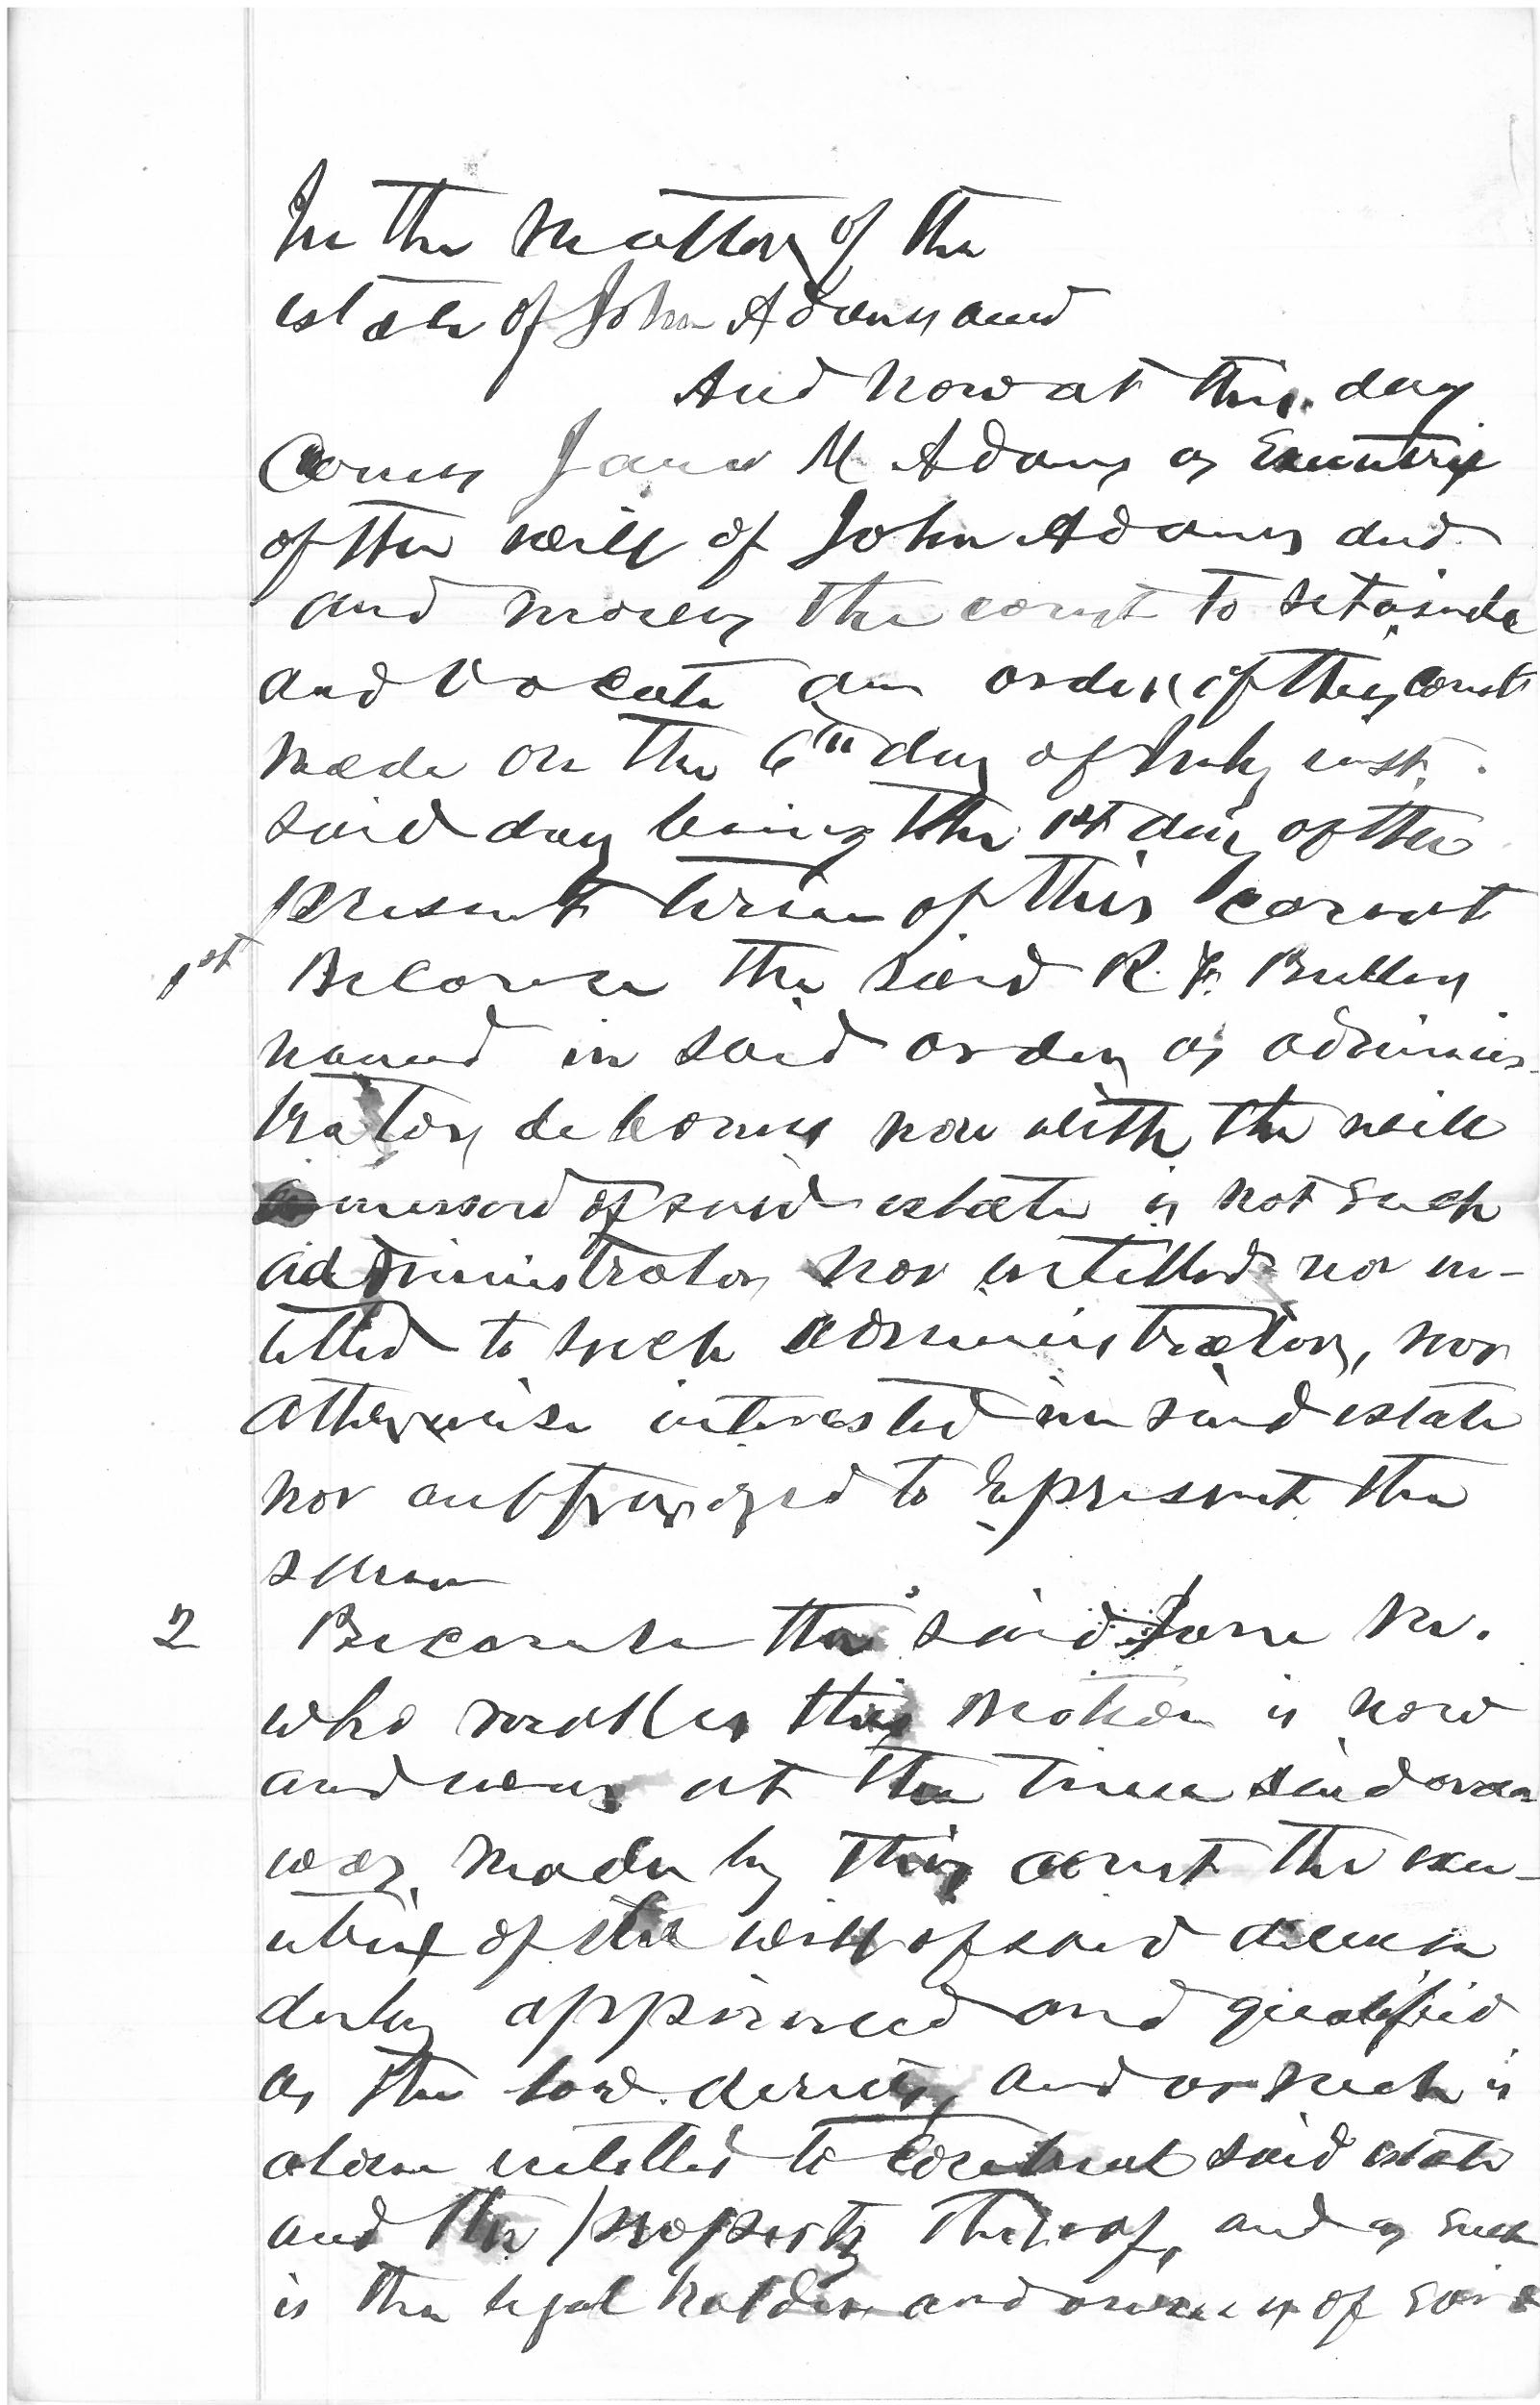 In the Matter of the
estate of John Adams decd
And now at this day
Comes Jane M Adams as Executrix
of the will of John Adams decd
and moves the court to set aside
and vacate an order of this court
made on the 6th day of July inst.
said day being the 1st day of the
present term of this court
1st Because the said R. F.
named in said order as adminis-
trator de bonis non with the will
annexed of said estate is not such
administrator nor entitled nor en-
titled to such administration, nor
otherwise interested in said estate
nor authorized to represent the
same
2 Because the said Jane M.
who makes this motion is now
and was at the time said order
was made by this court the exe-
cutrix of the will of said decease
duly appointed and qualified
as the law directs, and as such is
alone entitled to control said estate
and the property thereof, and as such
is the legal holder and owner of said